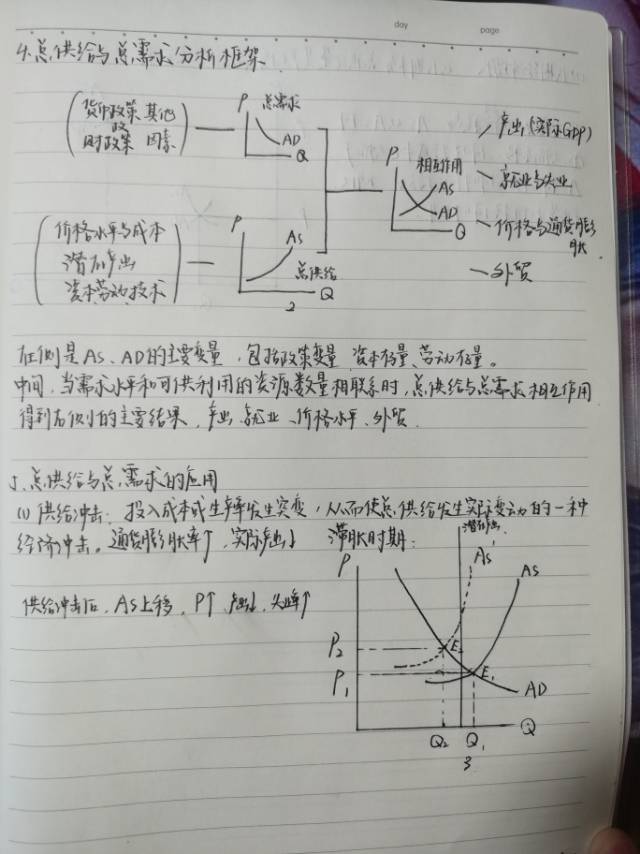 day page
4.总供给与总需求分析框架
货币政策 其他
财政政策 因素
P 总需求
AD
Q
价格水平与成本
潜在产出
资本劳动技术
P
AS
总供给
Q
2
P 相互作用
AS
AD
Q
产出(实际GDP)
就业与失业
价格与通货膨胀
外贸
左侧是AS、AD的主要变量,包括政策变量 资本存量、劳动存量。
中间,当需求水平和可供利用的资源数量相联系时,总供给与总需求相互作用
得到右侧的主要结果,产出、就业、价格水平、外贸
5.总供给与总需求的应用
(1)供给冲击:投入成本或生产率发生突变,从而使总供给发生实际变动的一种
经济冲击。通货膨胀率↑,实际产出↓ 滞胀时期:
供给冲击后,AS上移,P↑ 产出↓,失业率↑
潜在产出
P
AS'
AS
P₂
E₂
P₁
E₁
AD
Q₂ Q₁ Q
3